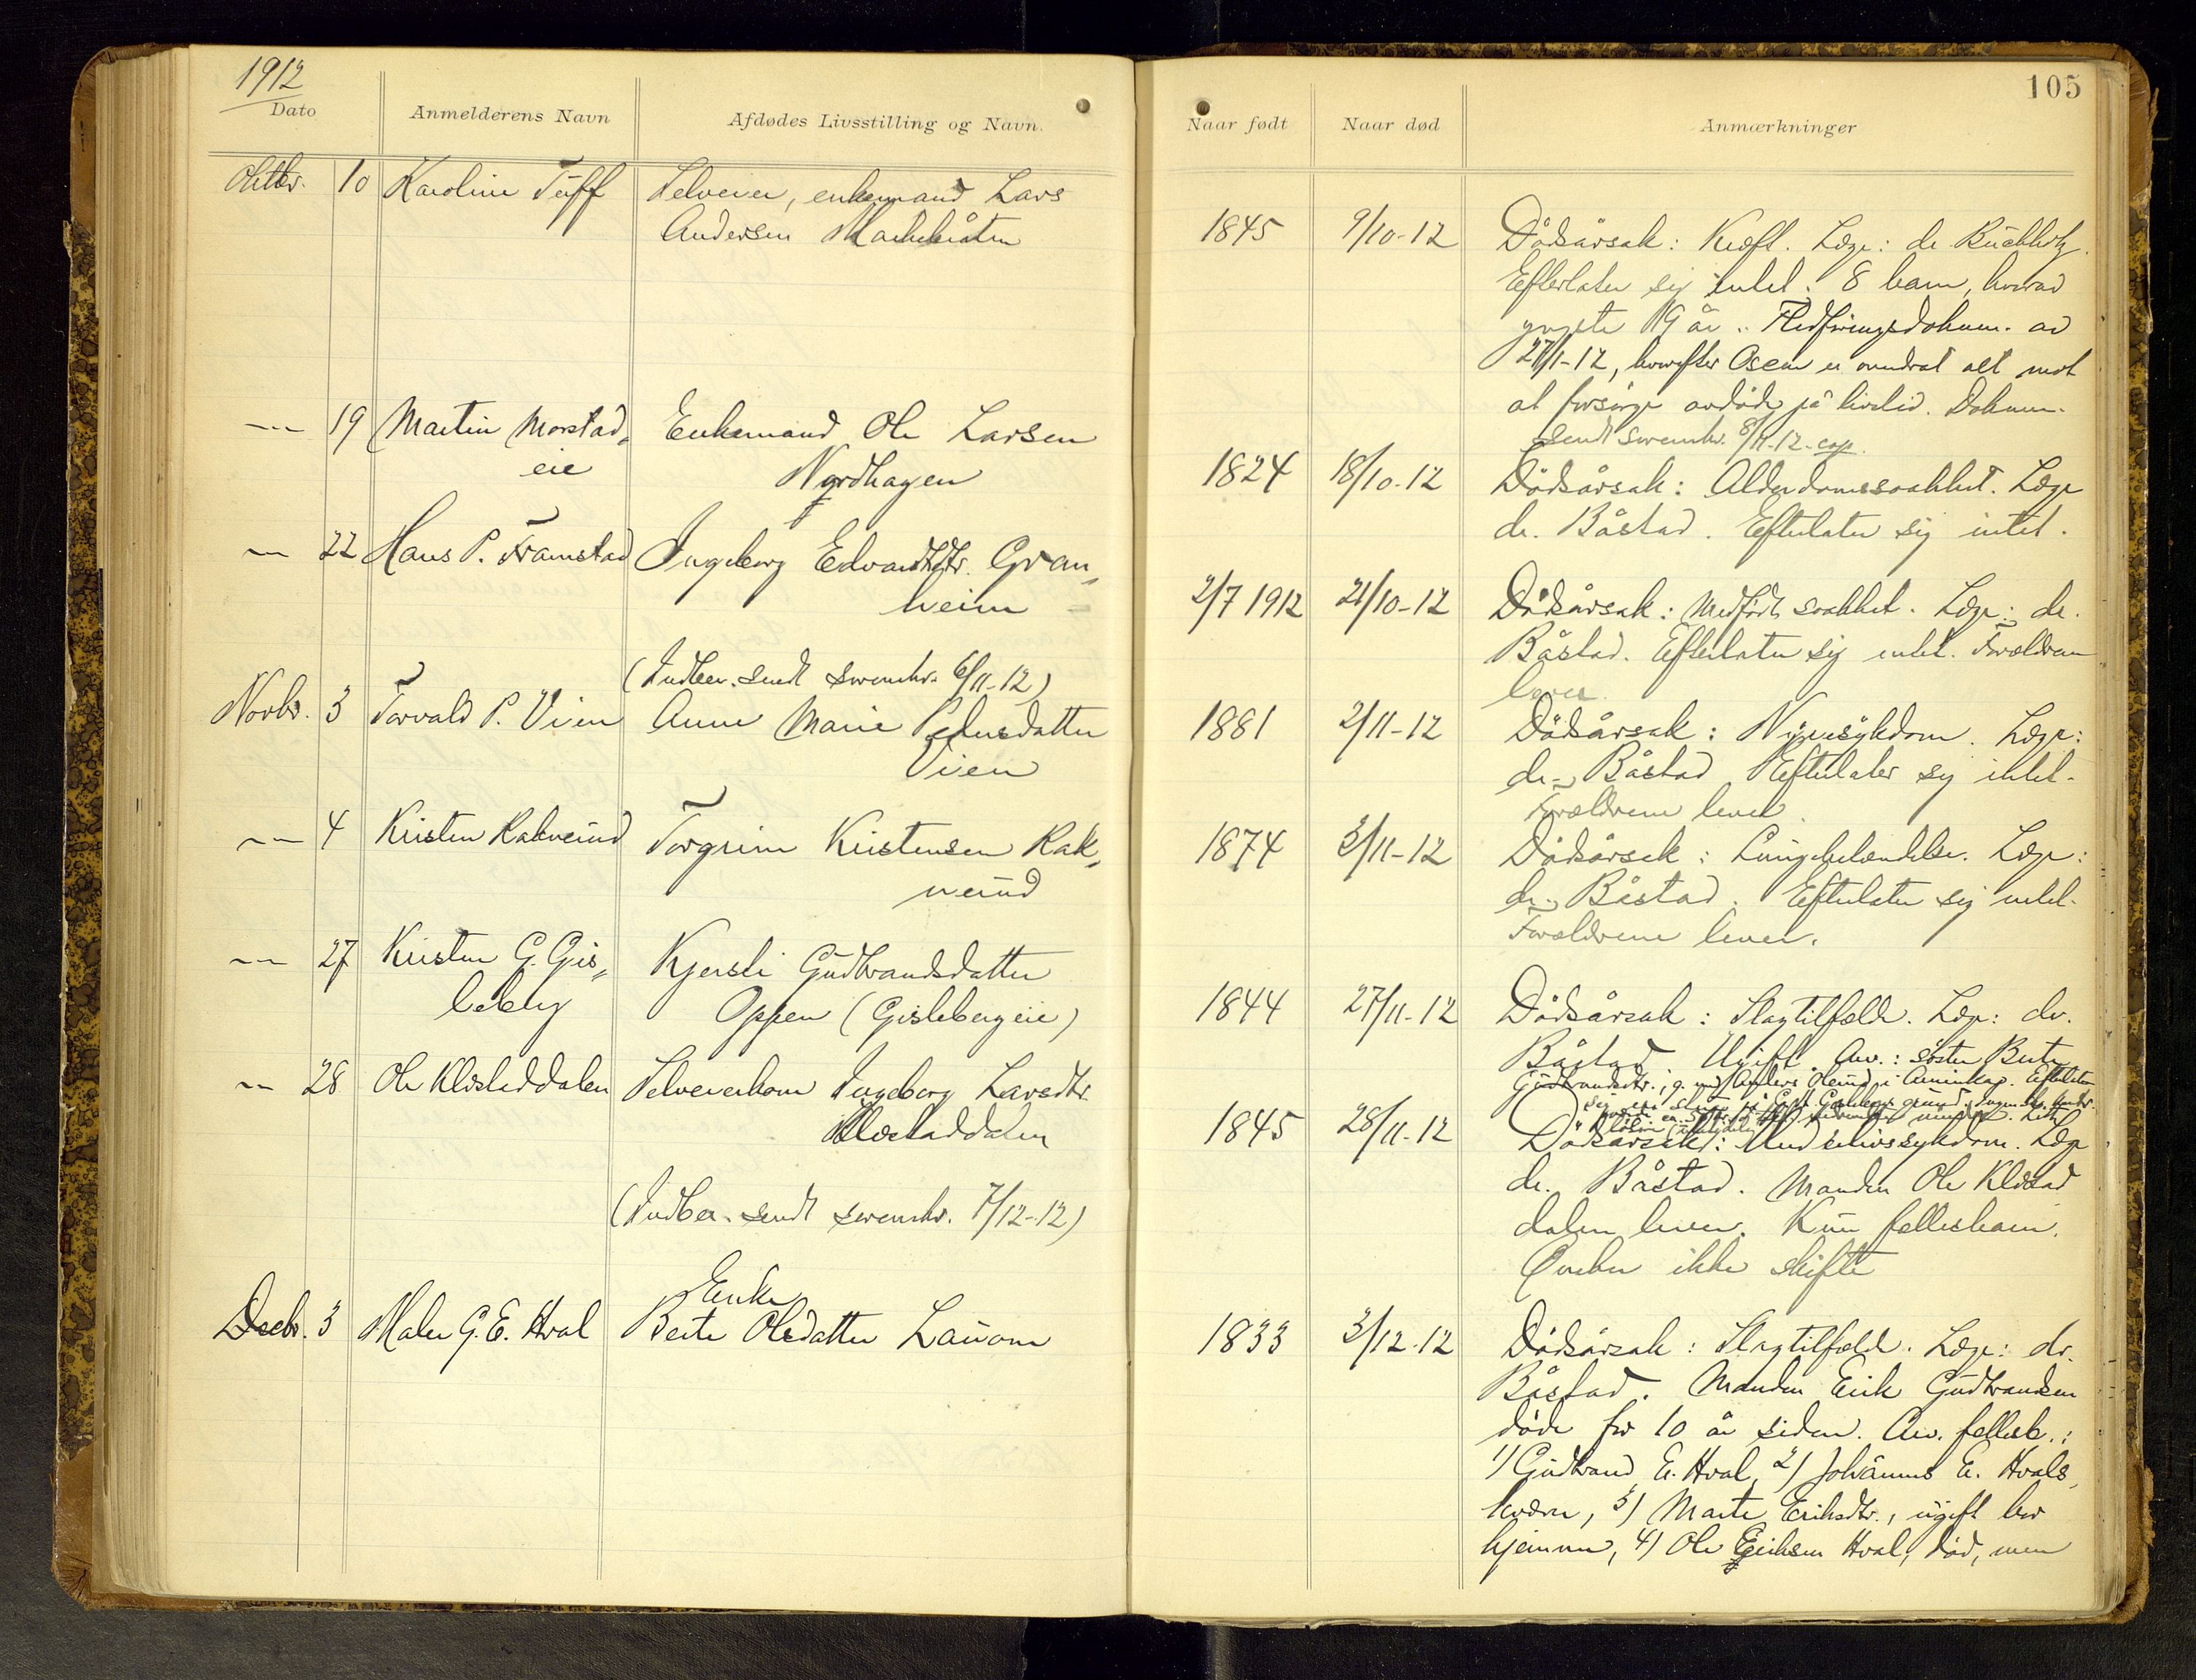 1912
105
Dato
Anmelderens Navn
Afdødes Livsstilling og Navn.
Naar født
Naar død
Anmærkninger
Oktbr. 10 Karoline Tuff
Selveier, enkemand Lars
Andersen
1845 9/10-12 Dødsårsak: Kræft. Læge: dr. Buchholz.
Efterlater sig intet. 8 barn, hvorav
yngste 19 år. Fledføringsdokum. av
27/1-12, hvorefter Oscar er overdrat alt mot
at forsørge avdøde på livstid. Dokum.
sendt sorenskr. 8/11-12- cop.
—"— 19 Martin Morstad-
eie
Enkemand Ole Larsen
Nordhagen
1824 18/10-12 Dødsårsak: Alderdomssvakhet. Læge
dr. Båstad. Efterlater sig intet.
—"— 22 Hans P. Framstad
Ingeborg Edvardsdtr. Gran-
heim
2/7 1912 21/10-12 Dødsårsak: Medfødt svakhet. Læge: dr.
Båstad. Efterlater sig intet. Forældrene
lever.
(Indber. sendt sorenskr. 6/11-12)
Novbr. 3 Torvald P. Vien
Anne Marie Pedersdatter
Vien
1881 2/11-12 Dødsårsak: Nyresykdom. Læge:
dr. Båstad. Efterlater sig intet.
Forældrene lever.
—"— 4 Kristen Raknerud
Torgrim Kristensen Rak-
nerud
1874 3/11-12 Dødsårsak: Lungebetændelse. Læge:
dr. Båstad. Efterlater sig intet.
Forældrene lever.
—"— 27 Kristen G. Gis-
leberg
Kjersti Gudbrandsdatter
Oppen (Gisleberg eie)
1844 27/11-12 Dødsårsak: Slagtilfælde. Læge: dr.
Båstad. Ugift. Arv.: søster Berte
Gudbrandsdtr., g. med Anders i Amerika. Efterlater
—"— 28 Ole Kløstaddalen
Selveierkone Ingeborg Larsdtr.
Kløstaddalen
1845 28/11-12 Dødsårsak: Underlivssykdom. Læge
dr. Båstad. Manden Ole Kløstad
dalen lever. Kun fellesbarn.
Ønsker ikke skifte
(Indber. sendt sorenskr. 7/12-12)
Decbr. 3 Maler G. E. Hval
Enke
Berte Olsdatter Lauom
1833 3/12-12 Dødsårsak: Slagtilfælde. Læge: dr.
Båstad. Manden Erik Gudbrandsen
døde for 10 år siden. Arv. fellesb.:
1) Gudbrand E. Hval, 2) Johannes E. Hvals-
kværn, 3) Marte Eriksdtr., ugift bor
hjemme, 4) Ole Eriksen Hval, død, men